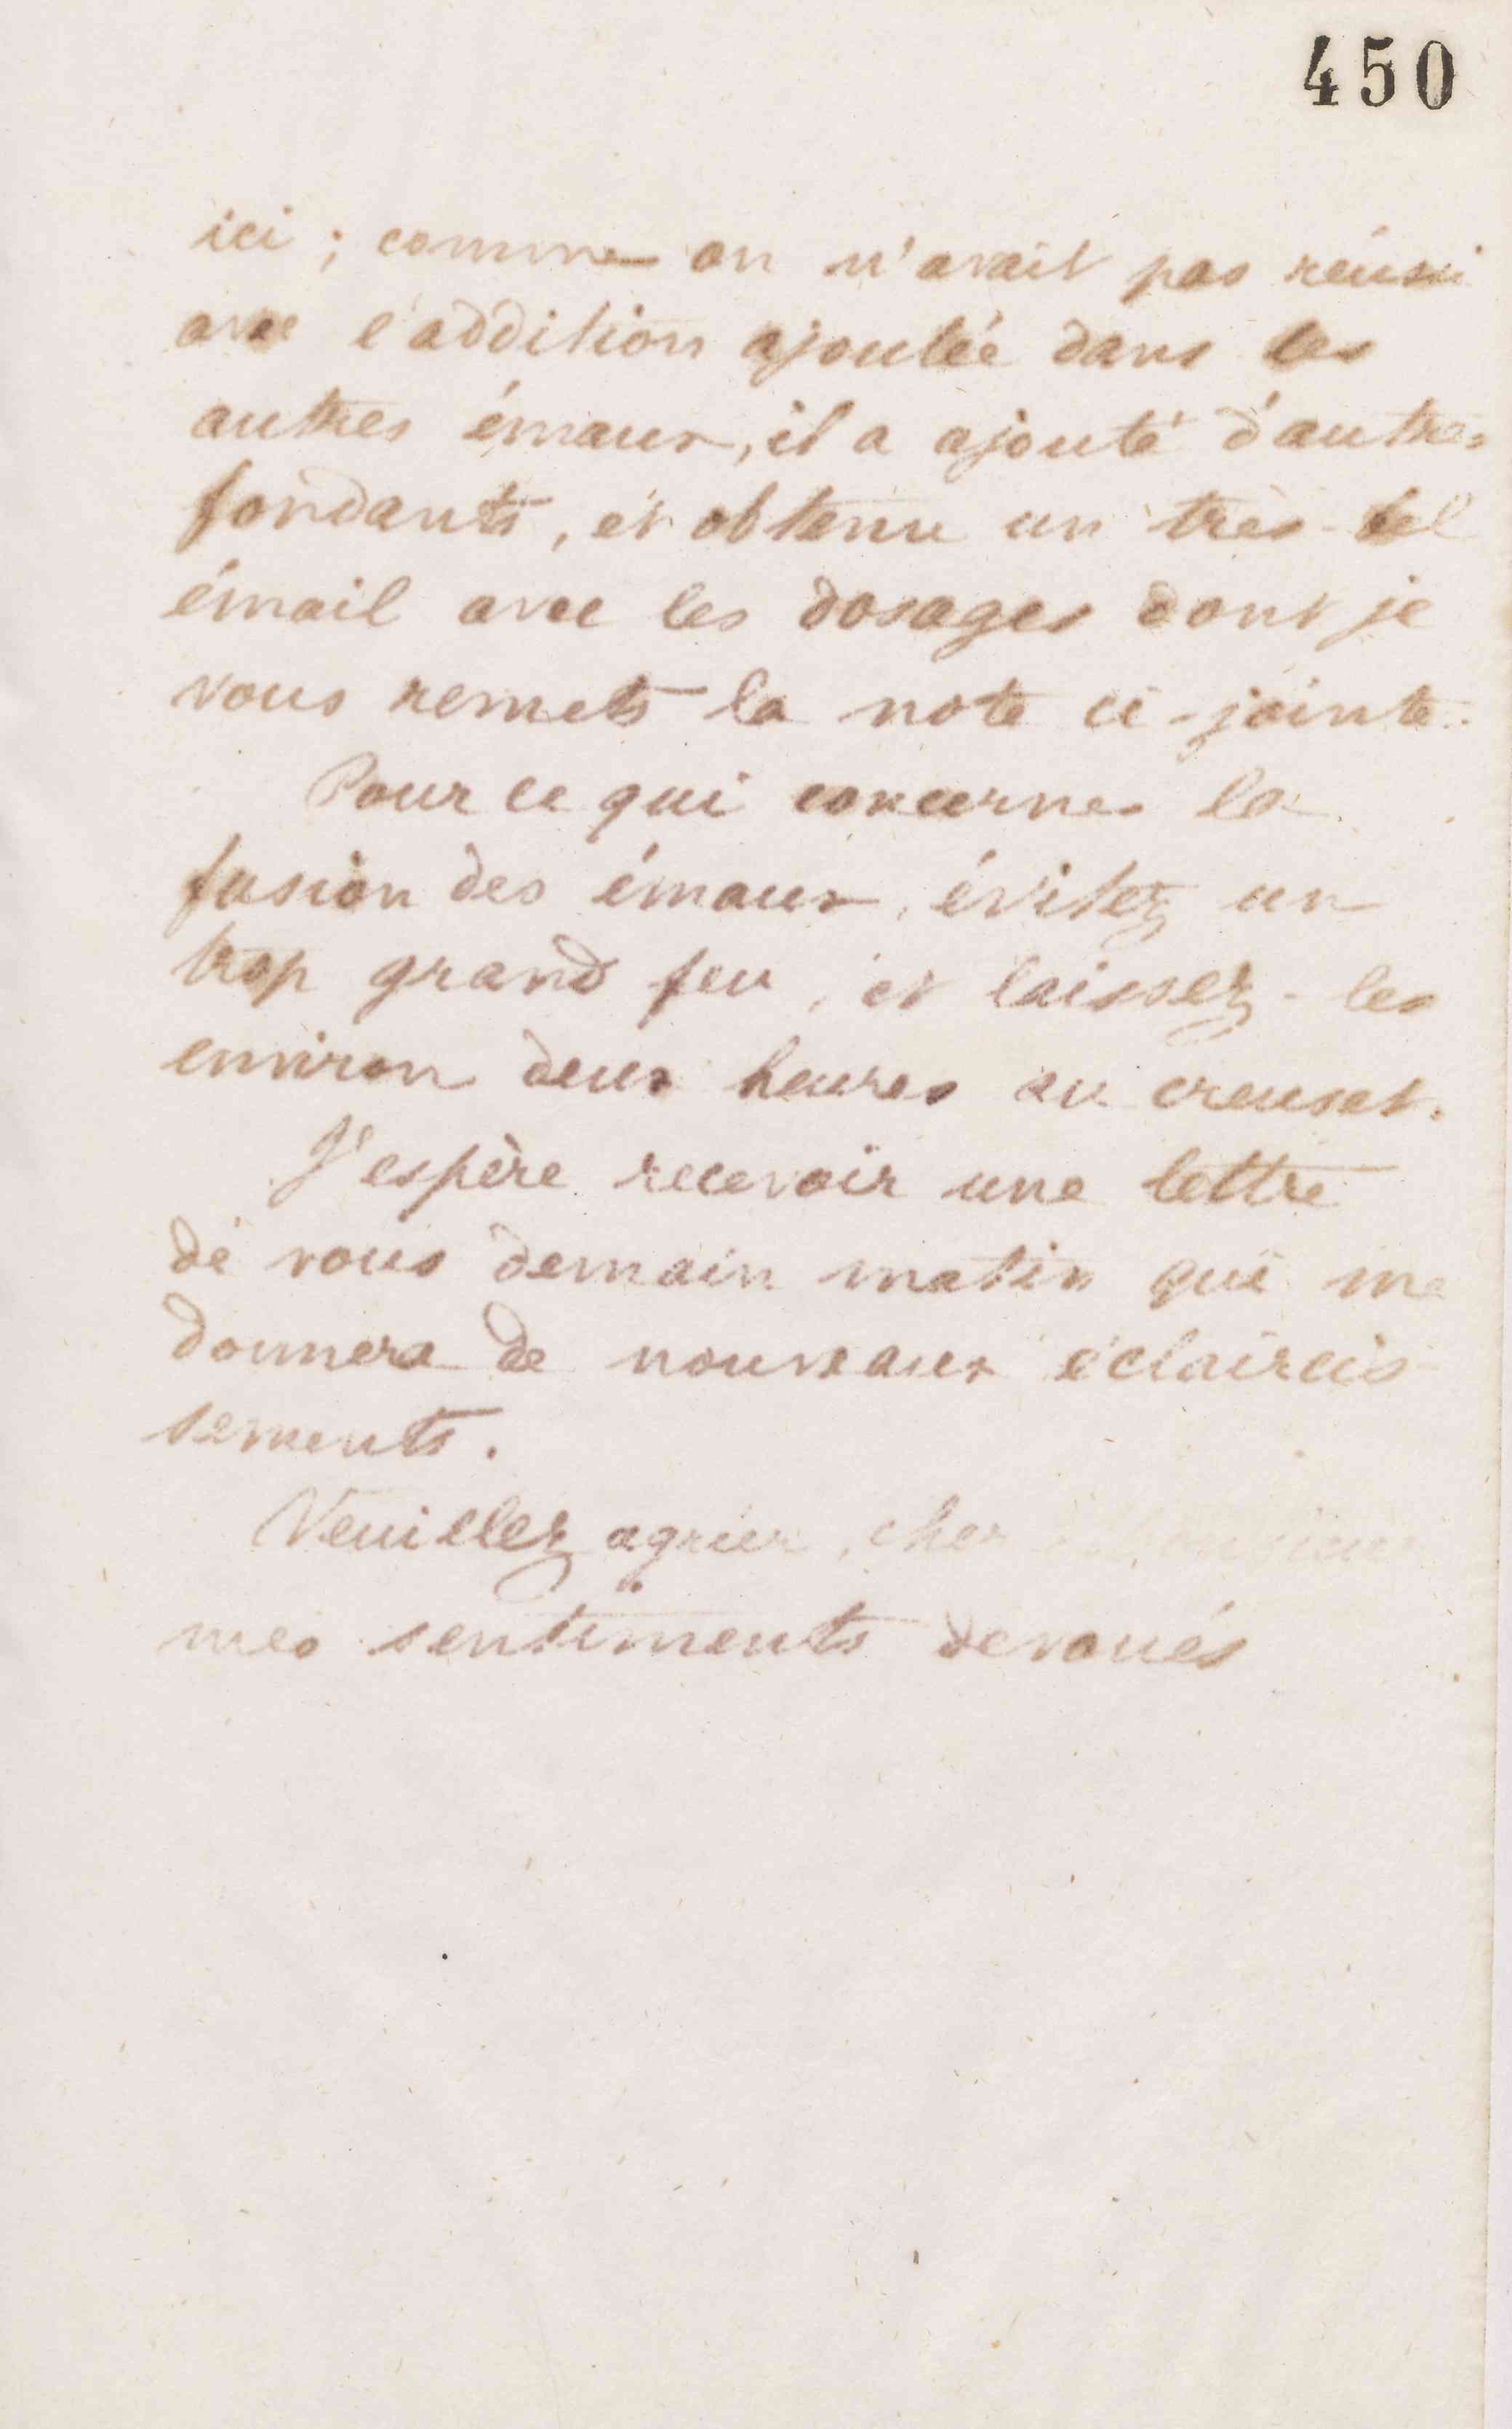 450
ici ; comme on n'avait pas réussi
avec l'addition ajoutée dans les
autres émaux, il a ajouté d'autres
fondants, et obtenu un très-bel
émail avec les dosages dont je
vous remets la note ci-jointe.
Pour ce qui concerne la
fusion des émaux, évitez un
trop grand feu, et laissez-les
environ deux heures au creuset.
J'espère recevoir une lettre
de vous demain matin qui me
donnera de nouveaux éclaircis-
sements.
Veuillez agréer, cher Monsieur
mes sentiments dévoués